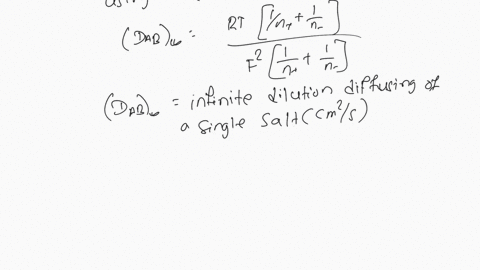 using
(DAB)∞ = RT [1/n+ + 1/n-]
F² [1/n+ + 1/n-]
(DAB)∞ = infinite dilution diffusing of
a single salt (cm²/s)